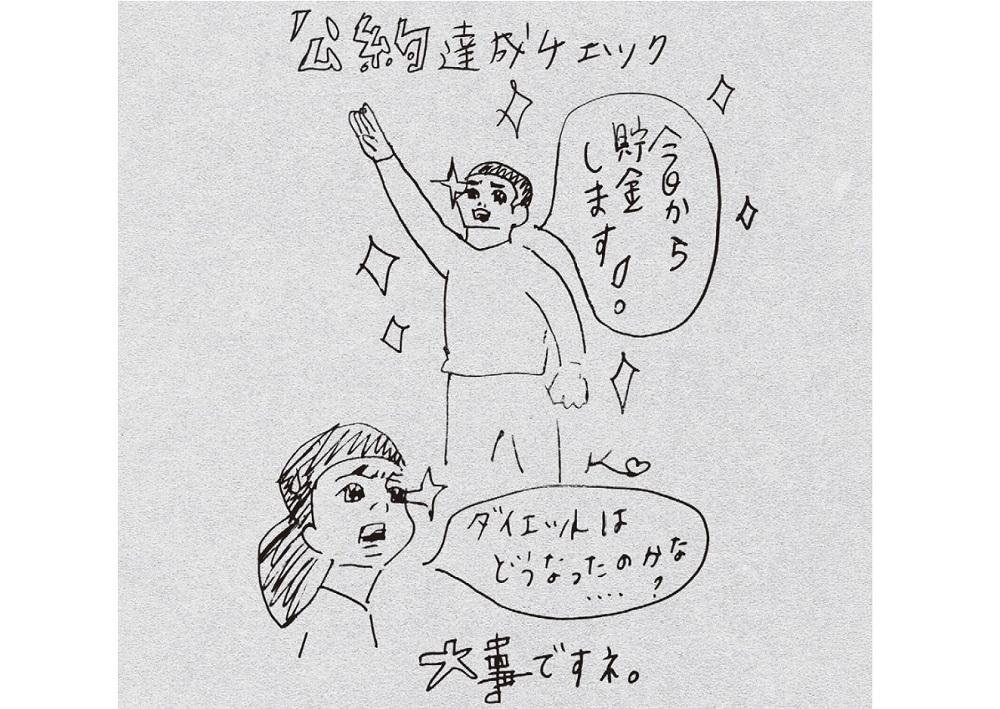 公約達成チェック
今日から
貯金
します!。
K♡
ダイエットは
どうなったのかな
....?
大事ですネ。